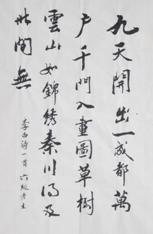 九天開出一成都萬
户千門入畫圖草樹
雲山如錦繡秦川得及
此間無
李白詩一首